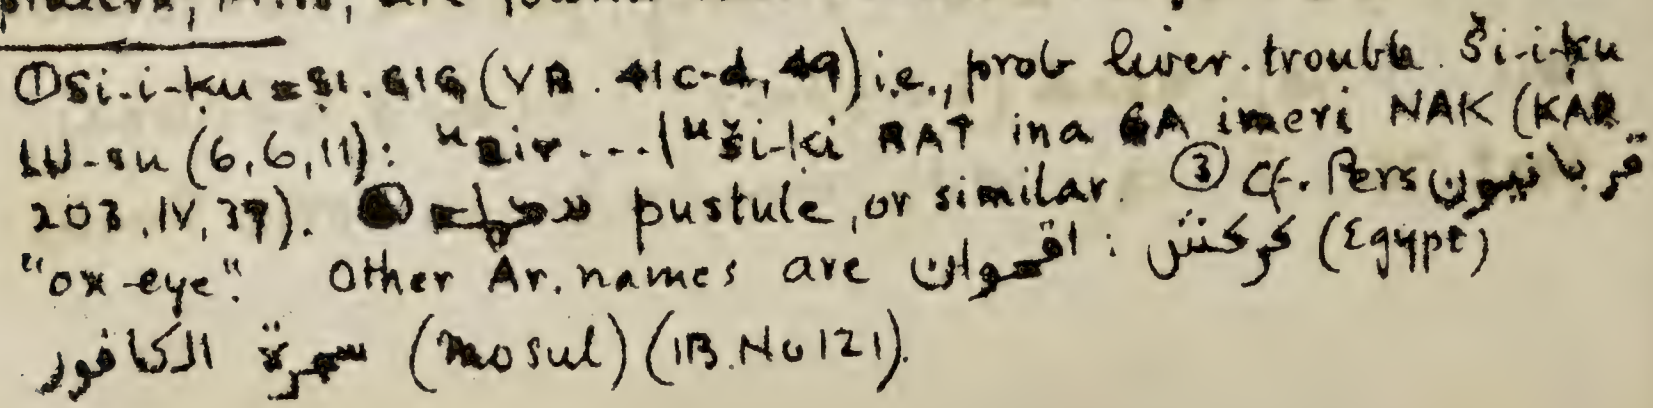 ① Si-i-ḳu = SI.GIG (VR. 41c-d, 49) i.e., prob liver-trouble. Ši-i-ḳu
LU-su (6,6,11): ᵘ ... | ᵘši-ki RAT ina GA imeri NAK (KAR
203, IV, 37). pustule, or similar. ③ Cf. Pers
"ox-eye". Other Ar. names are اقحوان : كركش (Egypt)
الكافور (Mosul) (IB. No 121).